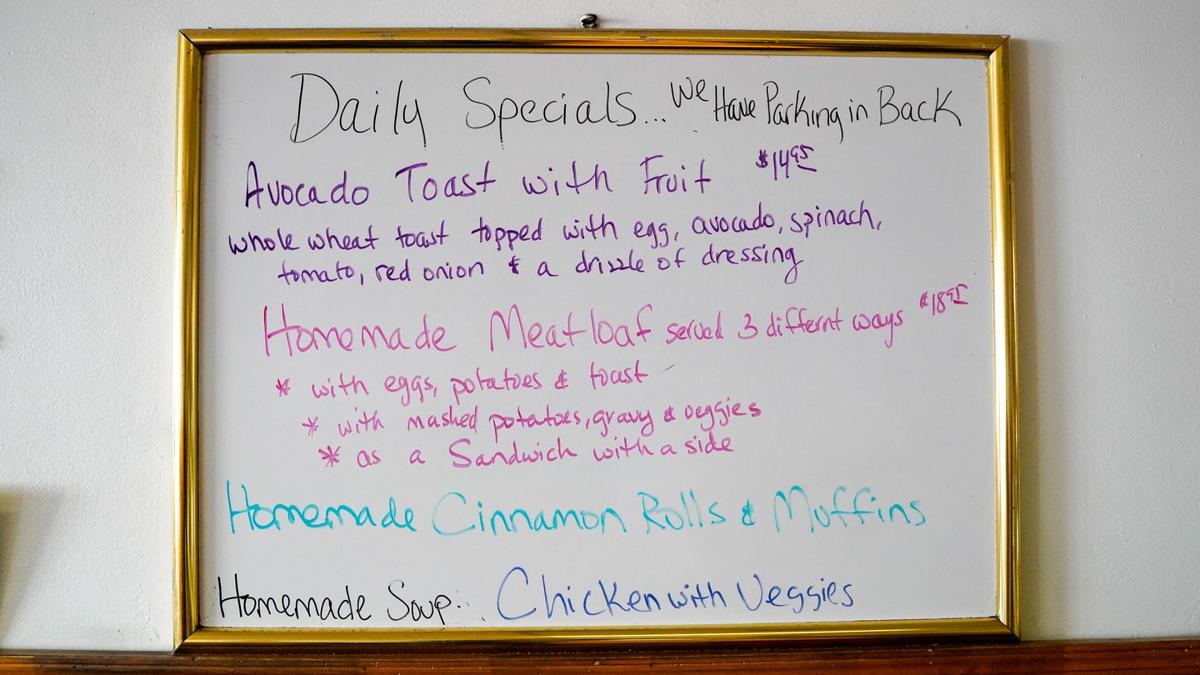 Daily Specials... We Have Parking in Back
Avocado Toast with Fruit $14.95
whole wheat toast topped with egg, avocado, spinach,
tomato, red onion & a drizzle of dressing
Homemade Meatloaf served 3 differnt ways $18.95
* with eggs, potatoes & toast
* with mashed potatoes, gravy & veggies
* as a Sandwich with a side
Homemade Cinnamon Rolls & Muffins
Homemade Soup... Chicken with Veggies